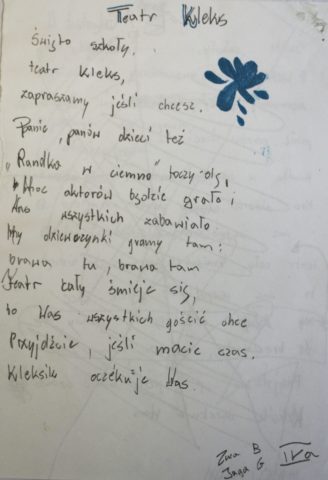 Teatr Kleks
Święto szkoły.
teatr Kleks,
zapraszamy jeśli chcesz.
Panie, panów dzieci też
"Randka w ciemno" toczy się,
Moc aktorów będzie grało i
Was wszystkich zabawiało
My dziewczynki gramy tam:
brawa tu, brawa tam
Teatr cały śmieje się,
to Was wszystkich gościć chce
Przyjdźcie, jeśli macie czas.
Kleksik oczekuje Was.
B
Jaga G
IVa